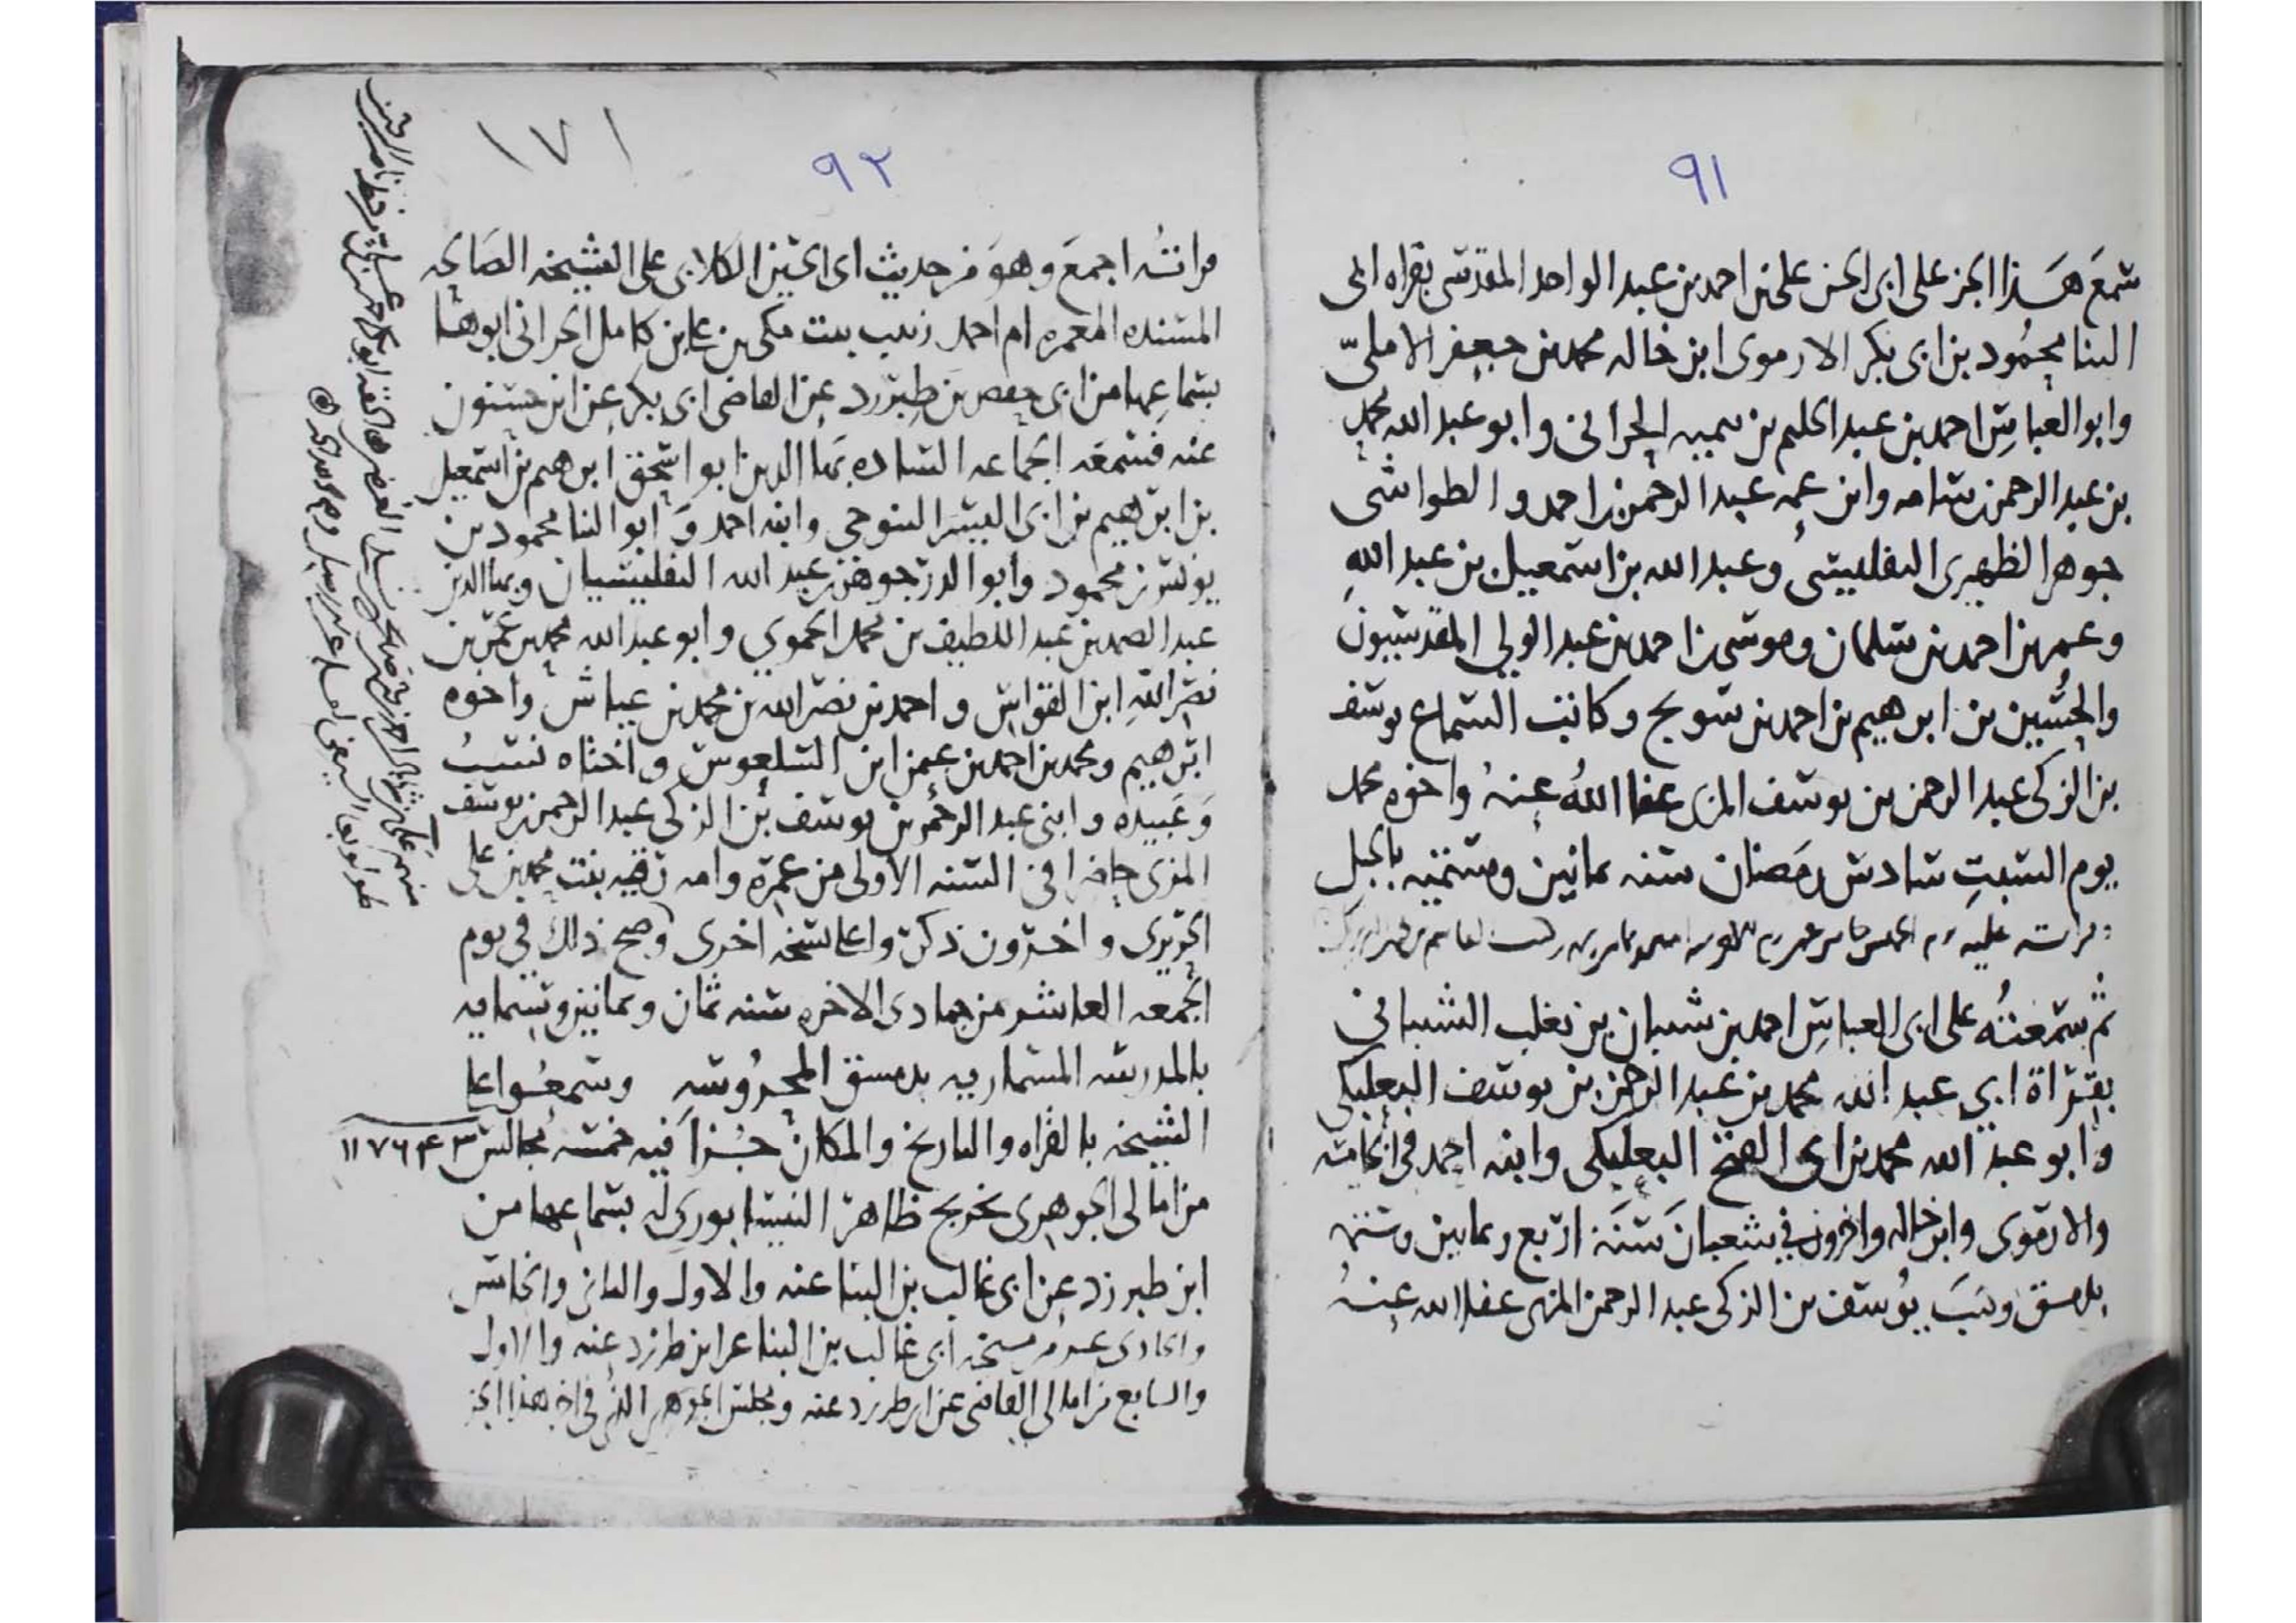 ٩١
سمع هذا الجز على ابى الحسن على بن احمد بن عبد الواحد المقدسى بقراه ابى
الثنا محمود بن ابى بكر الارموى ابن خاله محمد بن جعفر الاملىّ
وابو العباس احمد بن عبد الحليم بن تيميه الحرانى وابو عبد الله محمد
بن عبد الرحمن بن سامه وابن عمه عبد الرحمن بن احمد والطواشى
جوهر الظهيرى التفليسى وعبد الله بن اسمعيل بن عبد الله
وعمر بن احمد بن سلمان وموسى بن احمد بن عبد الولي المقدسيون
والحسين بن ابرهيم بن احمد بن سويج وكاتب السماع يوسف
بن الزكى عبد الرحمن بن يوسف المزى عفا الله عنه واخوه محمد
يوم السبت سادس رمضان سنه ثمانين وستمئه بالجبل
قراته عليه
ثم سمعته على ابى العباس احمد بن شيبان بن تغلب الشيبانى
بقراة ابي عبد الله محمد بن عبد الرحمن بن يوسف البعلبكى
وابو عبد الله محمد بن ابى الفتح البعلبكى وابنه احمد فى الخامسة
والارموى وابن خاله واخرون في شعبان سنة اربع وثمانين وستمئه
بدمشق وكتب يوسف بن الزكى عبد الرحمن المزى عفا الله عنه
٩٢
١٧١
قراته اجمع وهو من حديث ابى الحسين الكلابى على الشيخه الصالحه
المسنده المعمره ام احمد زينب بنت مكى بن على بن كامل الحرانى ابوها
بسماعها من ابى حفص بن طبرزد عن القاضى ابى بكر عن ابن حسنون
عنه فسمعه الجماعه الساده بها الدين ابو اسحق ابرهيم بن اسمعيل
بن ابرهيم بن ابى اليسر التنوخى وابنه احمد و ابو الثنا محمود بن
يونس بن محمود وابو الدر جوهر بن عبد الله التفليسيان وبها الدين
عبد الصمد بن عبد اللطيف بن محمد الحموي وابو عبد الله محمد بن عمر بن
نصر الله ابن القواس و احمد بن نصر الله بن محمد بن عياش واخوه
ابرهيم ومحمد بن احمد بن عمر ابن السلعوس واختاه نسب
وعبيده وابنى عبد الرحمن بن يوسف بن الزكى عبد الرحمن بن يوسف
المزى حاضرا فى السنه الاولى من عمره وامه رقيه بنت محمد بن على
الحريرى و اخرون ذكروا على نسخه اخرى وصح ذلك في يوم
الجمعه العاشر من جمادى الاخره سنه ثمان وثمانين وستمايه
بالمدرسه المسماريه بدمشق المحروسه وسمعوا على
الشيخه بالقراه والتاريخ والمكان جزا فيه خمسه مجالس ٣ ۴ ٦ ٧ ١١
من امالى الجوهرى تخريج ظاهر النيسابورى له بسماعها من
ابن طبرزد عن ابى غالب بن البنا عنه والاول والثانى والخامس
والحادى عشر من مشيخه ابى غالب بن البنا عن ابن طبرزد عنه والاول
والسابع من امالى القاضى عن ابن طبرزد عنه ومجلس الجوهرى الذى فى اخر هذا الجز